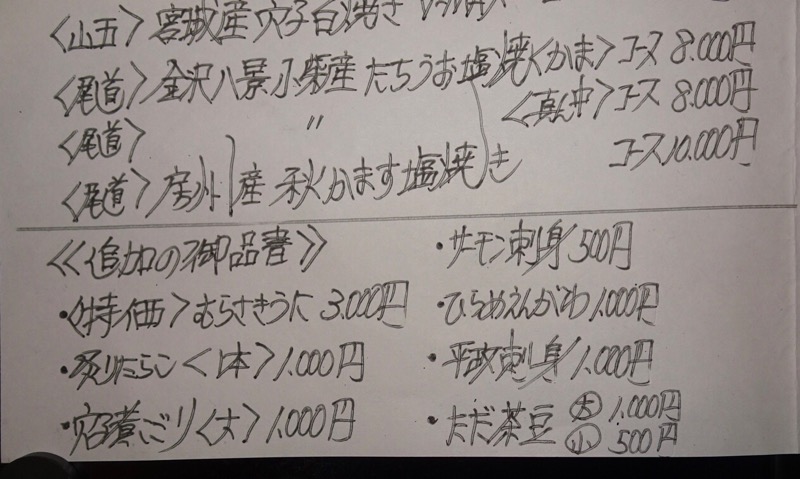 〈山五〉宮城産穴子白焼き
〈尾道〉金沢八景小柴産たちうお塩焼〈かま〉コース 8.000円
〈尾道〉 〃 〈真ん中〉コース 8.000円
〈尾道〉房州産 秋かます塩焼き コース10.000円
《追加の御品書》
・〈特価〉むらさきうに 3.000円
・炙りたらこ〈1本〉1.000円
・穴子煮こごり〈大〉1.000円
・サーモン刺身 500円
・ひらめえんがわ 1.000円
・平政刺身 1.000円
・ただ茶豆 大 1.000円
小 500円